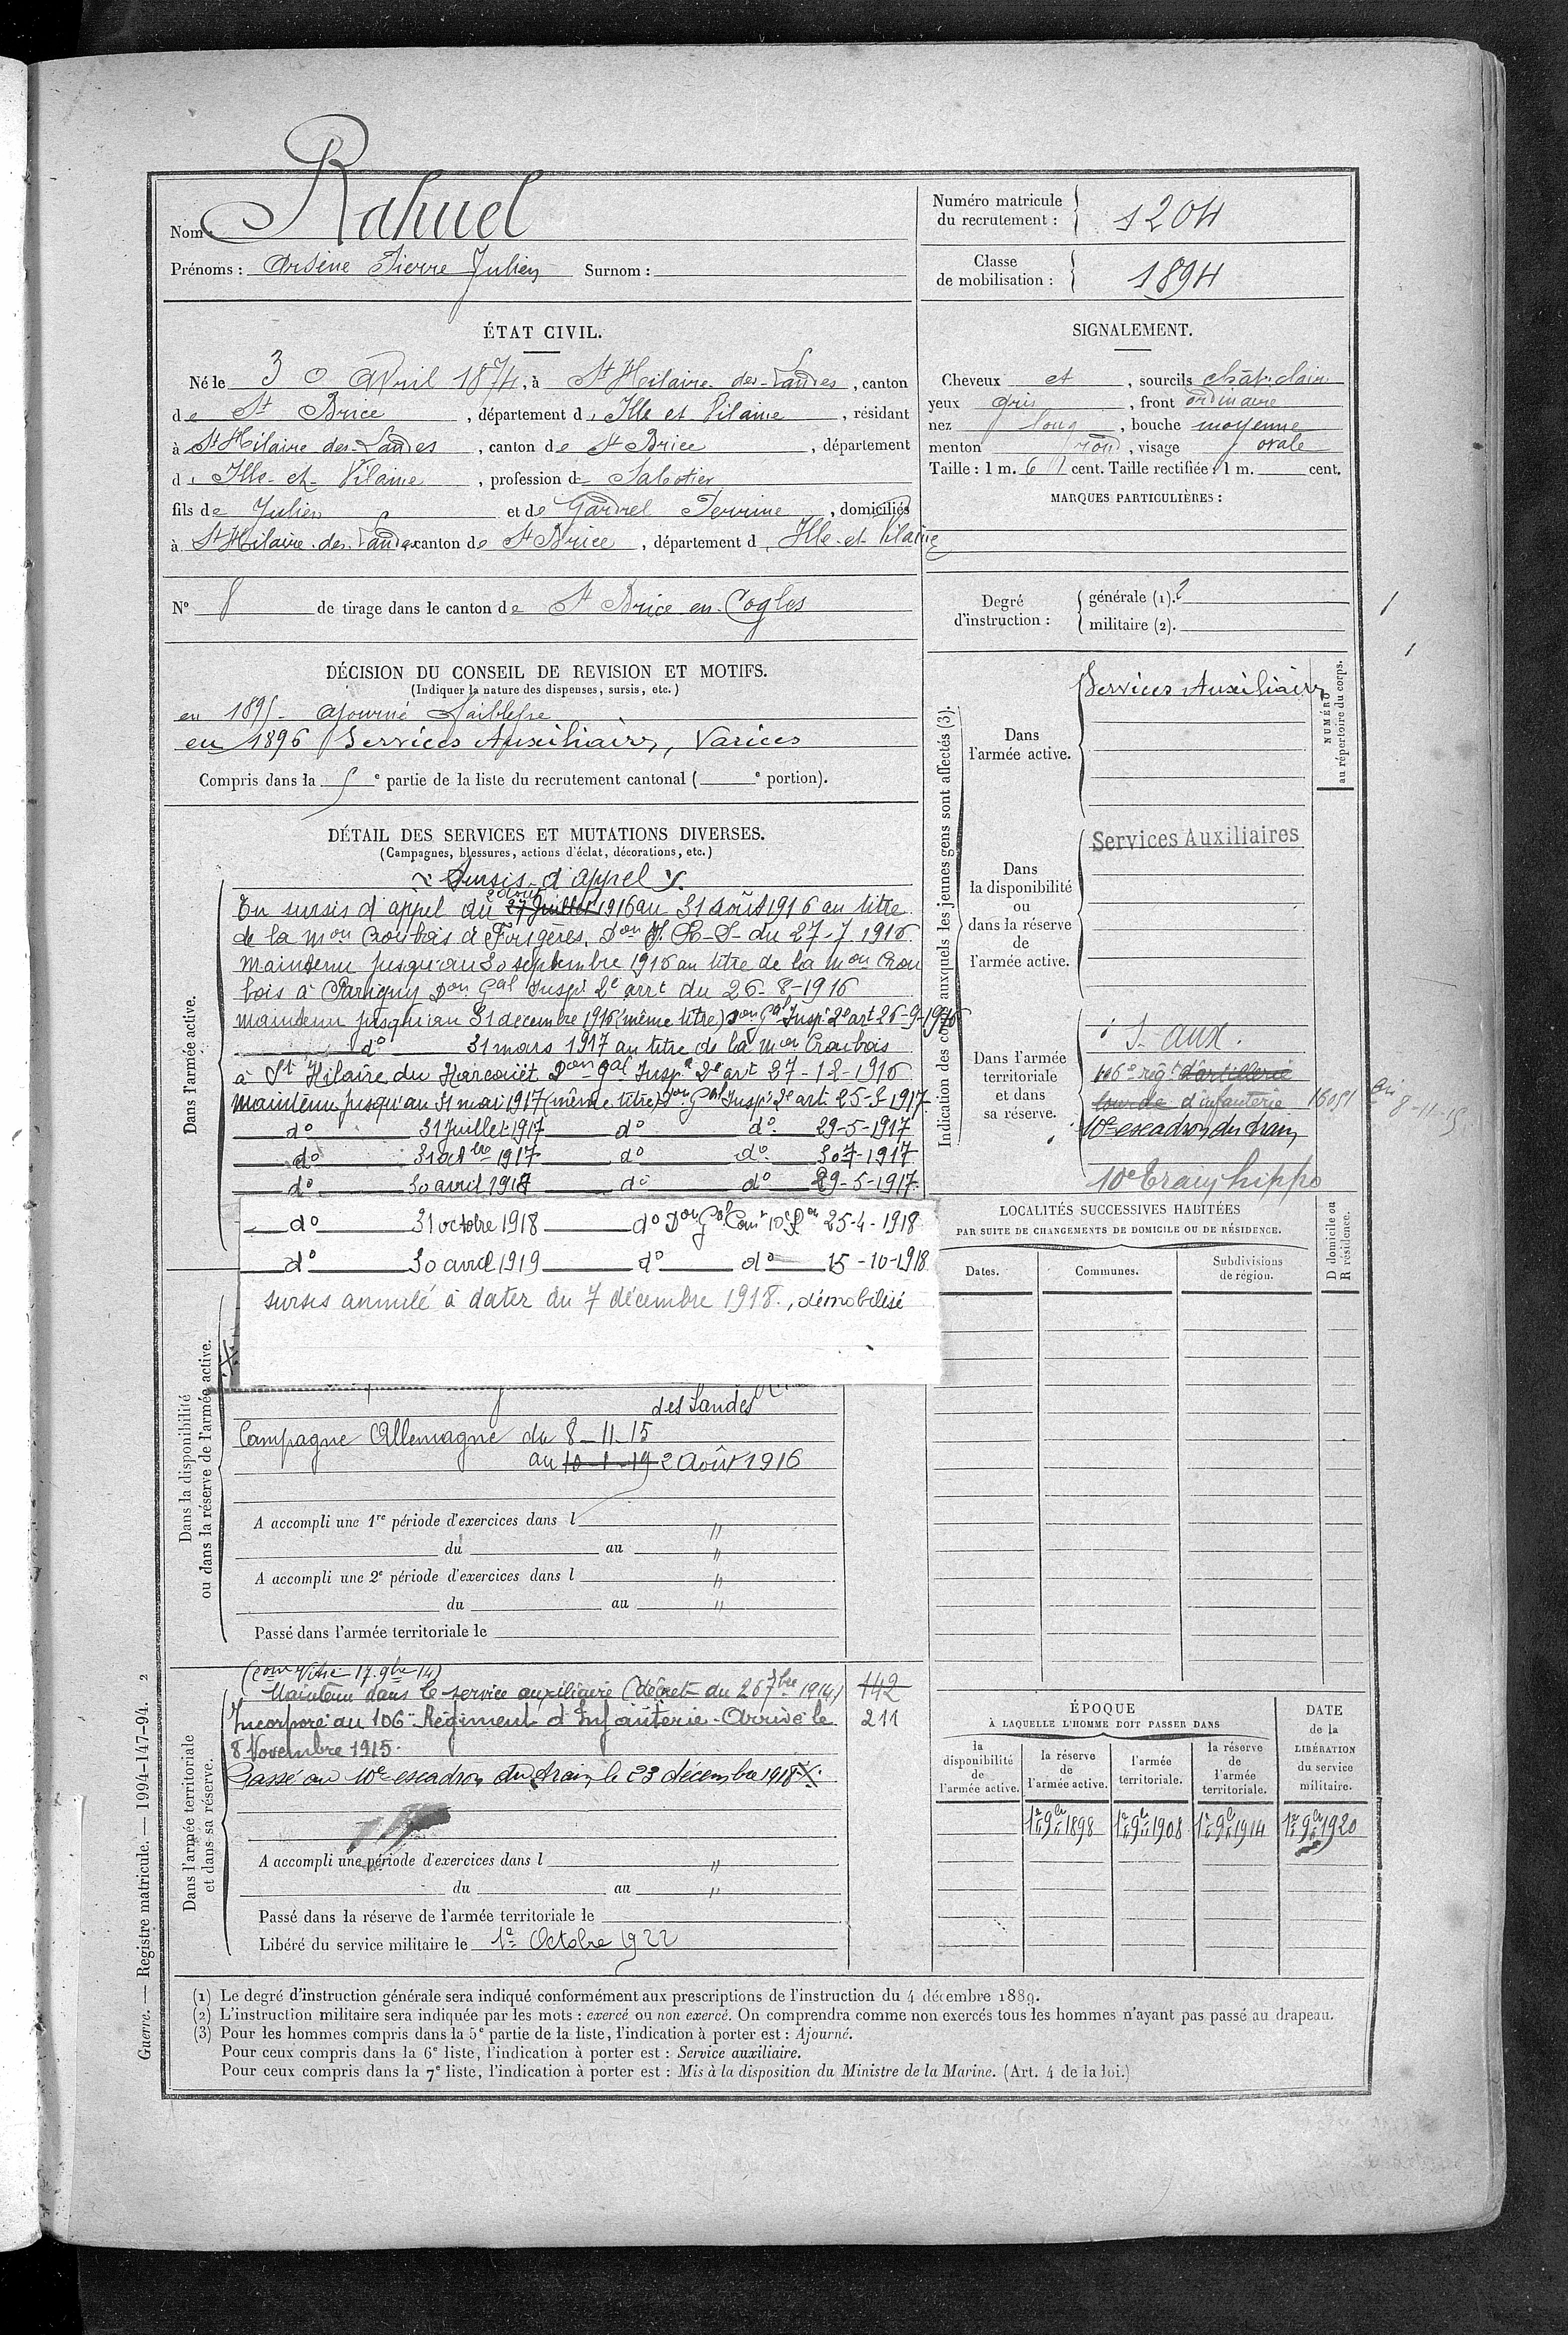 Nom : Rahuel
Prénoms : Arsène Pierre Julien Surnom :
Numéro matricule du recrutement : 1204
Classe de mobilisation : 1894
ÉTAT CIVIL.
Né le 30 Avril 1874, à St Hilaire-des-Landes, canton
de St Brice, département d'Ille et Vilaine, résidant
à St Hilaire-des-Landes, canton de St Brice, département
d'Ille-et-Vilaine, profession de Sabotier
fils de Julien et de Gardrel Perrine, domiciliés
à St Hilaire-des-Landes canton de St Brice, département d'Ille-et-Vilaine
N° 8 de tirage dans le canton de St Brice-en-Cogles
SIGNALEMENT.
Cheveux et, sourcils chât. clair
yeux gris, front ordinaire
nez long, bouche moyenne
menton rond, visage ovale
Taille : 1 m. 6 cent. Taille rectifiée : 1 m. cent.
MARQUES PARTICULIÈRES :
Degré d'instruction : générale (1). 2
militaire (2).
DÉCISION DU CONSEIL DE REVISION ET MOTIFS.
(Indiquer la nature des dispenses, sursis, etc.)
en 1895 - ajourné faiblesse
en 1896 Services Auxiliaires, Varices
Compris dans la 5e partie de la liste du recrutement cantonal ( e portion).
DÉTAIL DES SERVICES ET MUTATIONS DIVERSES.
(Campagnes, blessures, actions d'éclat, décorations, etc.)
Dans l'armée active.
Sursis d'appel
2 août
En sursis d'appel du 27 Juillet 1916 au 31 août 1916 au titre
de la mon Croubois à Fougères. Don S. S-S- du 27-7-1916.
Maintenu jusqu'au 30 septembre 1916 au titre de la mon Crou
bois à Parigny Don Gal Inspr 2e arrt du 26-8-1916
Maintenu jusqu'au 31 decembre 1916 (même titre) Don Gal Inspr 2e art 26-9-1916
do 31 mars 1917 au titre de la mon Croubois
à St Hilaire du Harcouët Don Gal Inspr 2e art 27-12-1916
Maintenu jusqu'au 31 mai 1917 (même titre) Don Gal Inspr 2e art 25-3-1917
do 31 Juillet 1917 do do 29-5-1917
do 31 octbre 1917 do do 30-7-1917
do 30 avril 1918 do do 29-5-1917
do 31 octobre 1918 do Don Gal Comt 10e Ron 25-4-1918
do 30 avril 1919 do do 15-10-1918
sursis annulé à dater du 7 décembre 1918., démobilisé
Dans la disponibilité
ou dans la réserve de l'armée active.
des Landes
Campagne Allemagne du 8-11-15
au 10-1-19 2 Août 1916
A accompli une 1re période d'exercices dans l "
du au "
A accompli une 2e période d'exercices dans l "
du au "
Passé dans l'armée territoriale le
Dans l'armée territoriale
et dans sa réserve.
(com Vitré 17-9bre-14)
Maintenu dans le service auxiliaire (décret du 26 7bre 1914) 142
Incorporé au 106e Régiment d'Infanterie. Arrivé le 211
8 Novembre 1915.
Passé au 10e escadron du train le 23 décembre 1918 X.
A accompli une période d'exercices dans l "
du au "
Passé dans la réserve de l'armée territoriale le
Libéré du service militaire le 1er Octobre 1922
Indication des corps auxquels les jeunes gens sont affectés (3).
NUMÉRO
au répertoire du corps.
Dans
l'armée active.
Services Auxiliaires
Dans
la disponibilité
ou
dans la réserve
de
l'armée active.
Services Auxiliaires
Dans l'armée
territoriale
et dans
sa réserve.
S. aux.
106e régt d'artillerie
lourde d'infanterie 16051
8-11-15
10e escadron du train
10e train hippo
LOCALITÉS SUCCESSIVES HABITÉES
PAR SUITE DE CHANGEMENTS DE DOMICILE OU DE RÉSIDENCE.
Dates. Communes. Subdivisions de région. D domicile ou R résidence.
ÉPOQUE
À LAQUELLE L'HOMME DOIT PASSER DANS
DATE de la LIBÉRATION du service militaire.
la disponibilité de l'armée active. la réserve de l'armée active. l'armée territoriale. la réserve de l'armée territoriale.
1er 9bre 1898 1er 9bre 1908 1er 9bre 1914 1er 9bre 1920
(1) Le degré d'instruction générale sera indiqué conformément aux prescriptions de l'instruction du 4 décembre 1889.
(2) L'instruction militaire sera indiquée par les mots : exercé ou non exercé. On comprendra comme non exercés tous les hommes n'ayant pas passé au drapeau.
(3) Pour les hommes compris dans la 5e partie de la liste, l'indication à porter est : Ajourné.
Pour ceux compris dans la 6e liste, l'indication à porter est : Service auxiliaire.
Pour ceux compris dans la 7e liste, l'indication à porter est : Mis à la disposition du Ministre de la Marine. (Art. 4 de la loi.)
Guerre. — Registre matricule. — 1994-147-94. 2